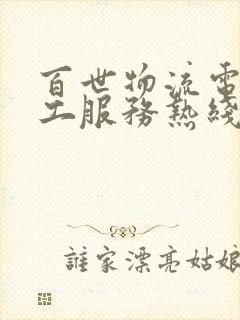 百世物流電
工服務熱綫
誰家漂亮姑娘